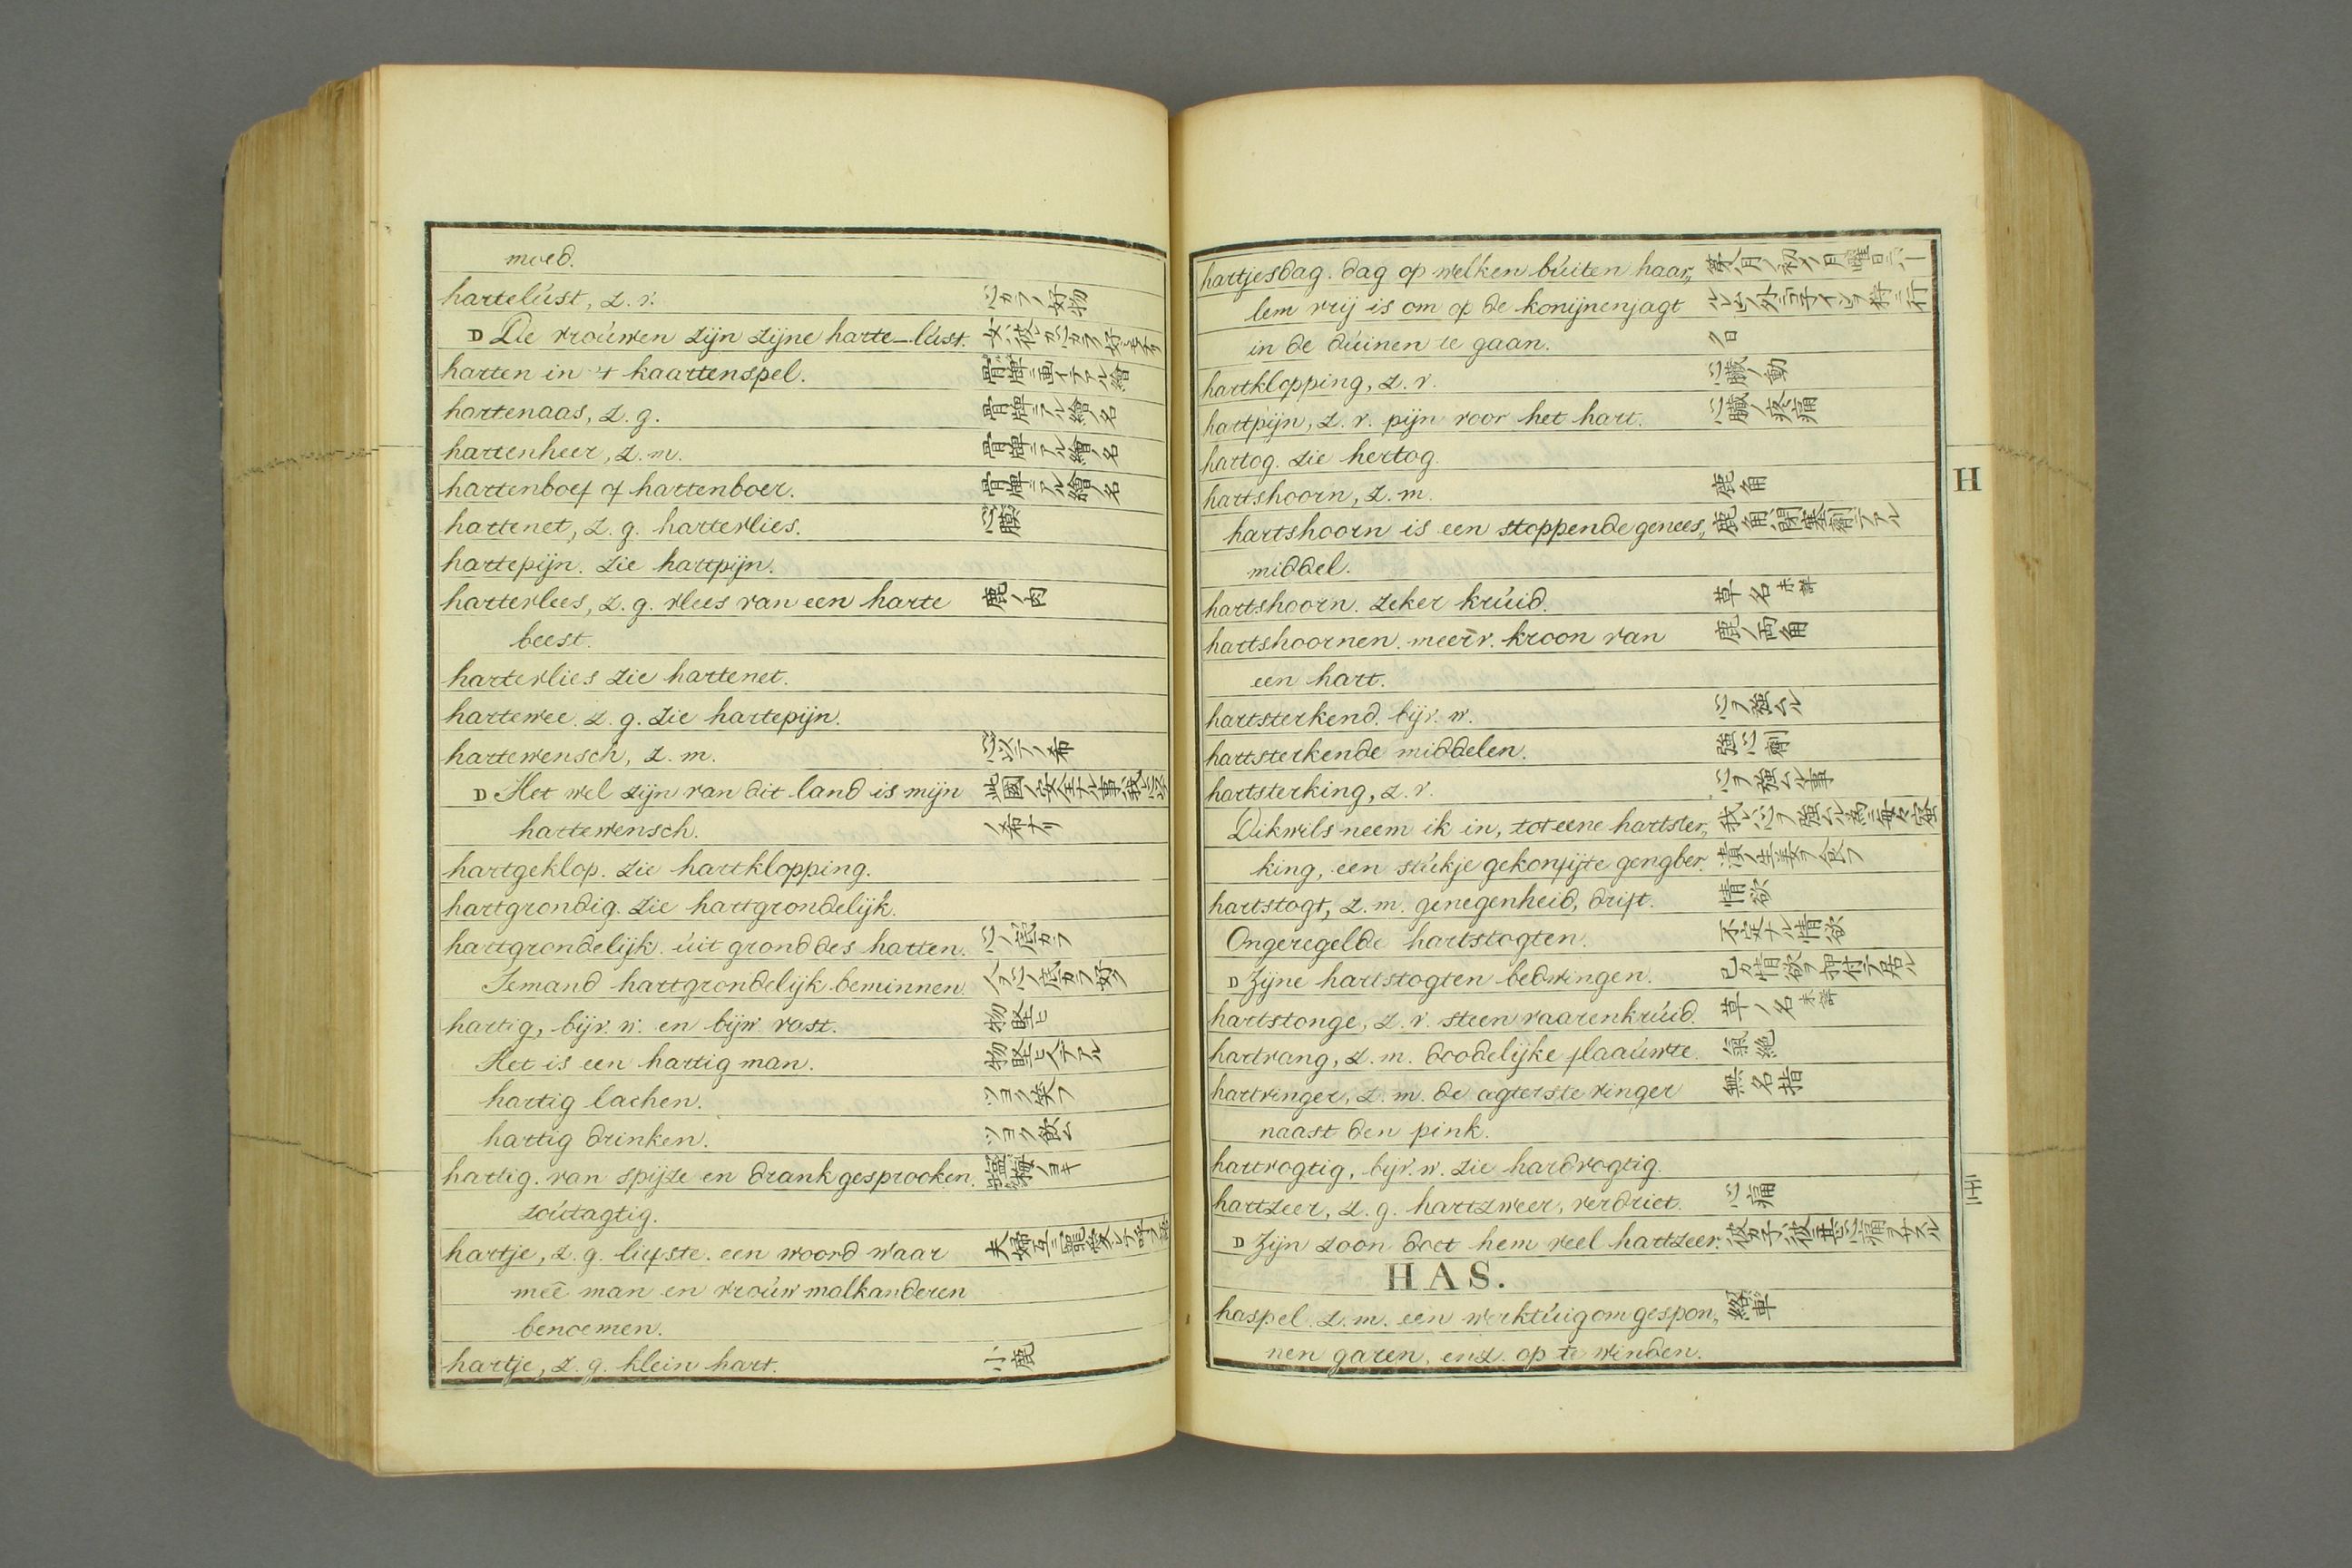 moed.
hartelúst, z. v. 心カラノ好物
D De vroúwen zijn zijne harte-lúst.
harten in 't kaartenspel. 骨牌ニ画イテアル繪
hartenaas, z. g. 骨牌ニアル繪ノ名
hartenheer, z. m. 骨牌ニアル繪ノ名
hartenboef of hartenboer. 骨牌ニアル繪ノ名
hartenet, z. g. hartevlies. 心膜
hartepijn. zie hartpijn.
hartevlees, z. g. vlees van een harte 鹿ノ肉
beest.
hartevlies zie hartenet.
hartewee. z. g. zie hartepijn.
hartewensch, z. m.
D Het wel zijn van dit land is mijn 此國ノ安全ナル事我心
hartewensch. ノ希ナリ
hartgeklop. zie hartklopping.
hartgrondig. zie hartgrondelijk.
hartgrondelijk. úit grond des harten. 心ノ底カラ
Iemand hartgrondelijk beminnen. 人ヲ心ノ底カラ好フ
hartig, bijv. w. en bijw. vast. 物堅ヒ
Het is een hartig man. 物堅ヒ人デアル
hartig lachen. ツヨク笑フ
hartig drinken. ツヨク飲ム
hartig. van spijze en drank gesprooken. 塩梅ノヨキ
zoútagtig.
hartje, z. g. liefste. een woord waar 夫婦互ニ寵愛シテ呼フ
meê man en vroúw malkanderen
benoemen.
hartje, z. g. klein hart. 小鹿
hartjesdag. dag op welken búiten haar„ 八月ノ初ノ月曜日ニハー
lem vrij is om op de konijnenjagt
in de dúinen te gaan. 名日
hartklopping, z. v. 心臓ノ動
hartpijn, z. v. pijn voor het hart. 心臓ノ疼痛
hartog. zie hertog.
hartshoorn, z. m. 鹿角
hartshoorn is een stoppende genees„ 鹿角ハ閉塞劑テアル
middel.
hartshoorn. zeker krúid. 草名 未詳
hartshoornen. meerv. kroon van 鹿ノ両角
een hart.
hartsterkend. bijv. w. 心ヲ強ムル
hartsterkende middelen. 強心劑
hartsterking, z. v. 心ヲ強ムル事
Dikwils neem ik in, tot eene hartster„ 我レ心ヲ強ムル為ニ毎々蜜
king, een stúkje gekonfijte gengber. 漬ノ生姜ヲ食フ
hartstogt, z. m. genegenheid, drift. 情欲
Ongeregelde hartstogten. 不定ナル情欲
D Zijne hartstogten bedwingen. 己カ情欲ヲ押付テ居ル
hartstonge, z. v. steen vaarenkrúid. 草ノ名 未詳
hartvang, z. m. doodelijke flaaúwte. 氣絶
hartvinger, z. m. de agterste vinger 無名指
naast den pink.
hartvogtig, bijv. w. zie hardvogtig.
hartzeer, z. g. hartzweer, verdriet. 心痛
D Zijn zoon doet hem veel hartzeer. 彼カ子ハ彼ニ甚心痛ヲサスル
HAS.
haspel. z. m. een werktúig om gespon„ 絡車
nen garen, enz. op te winden.
H